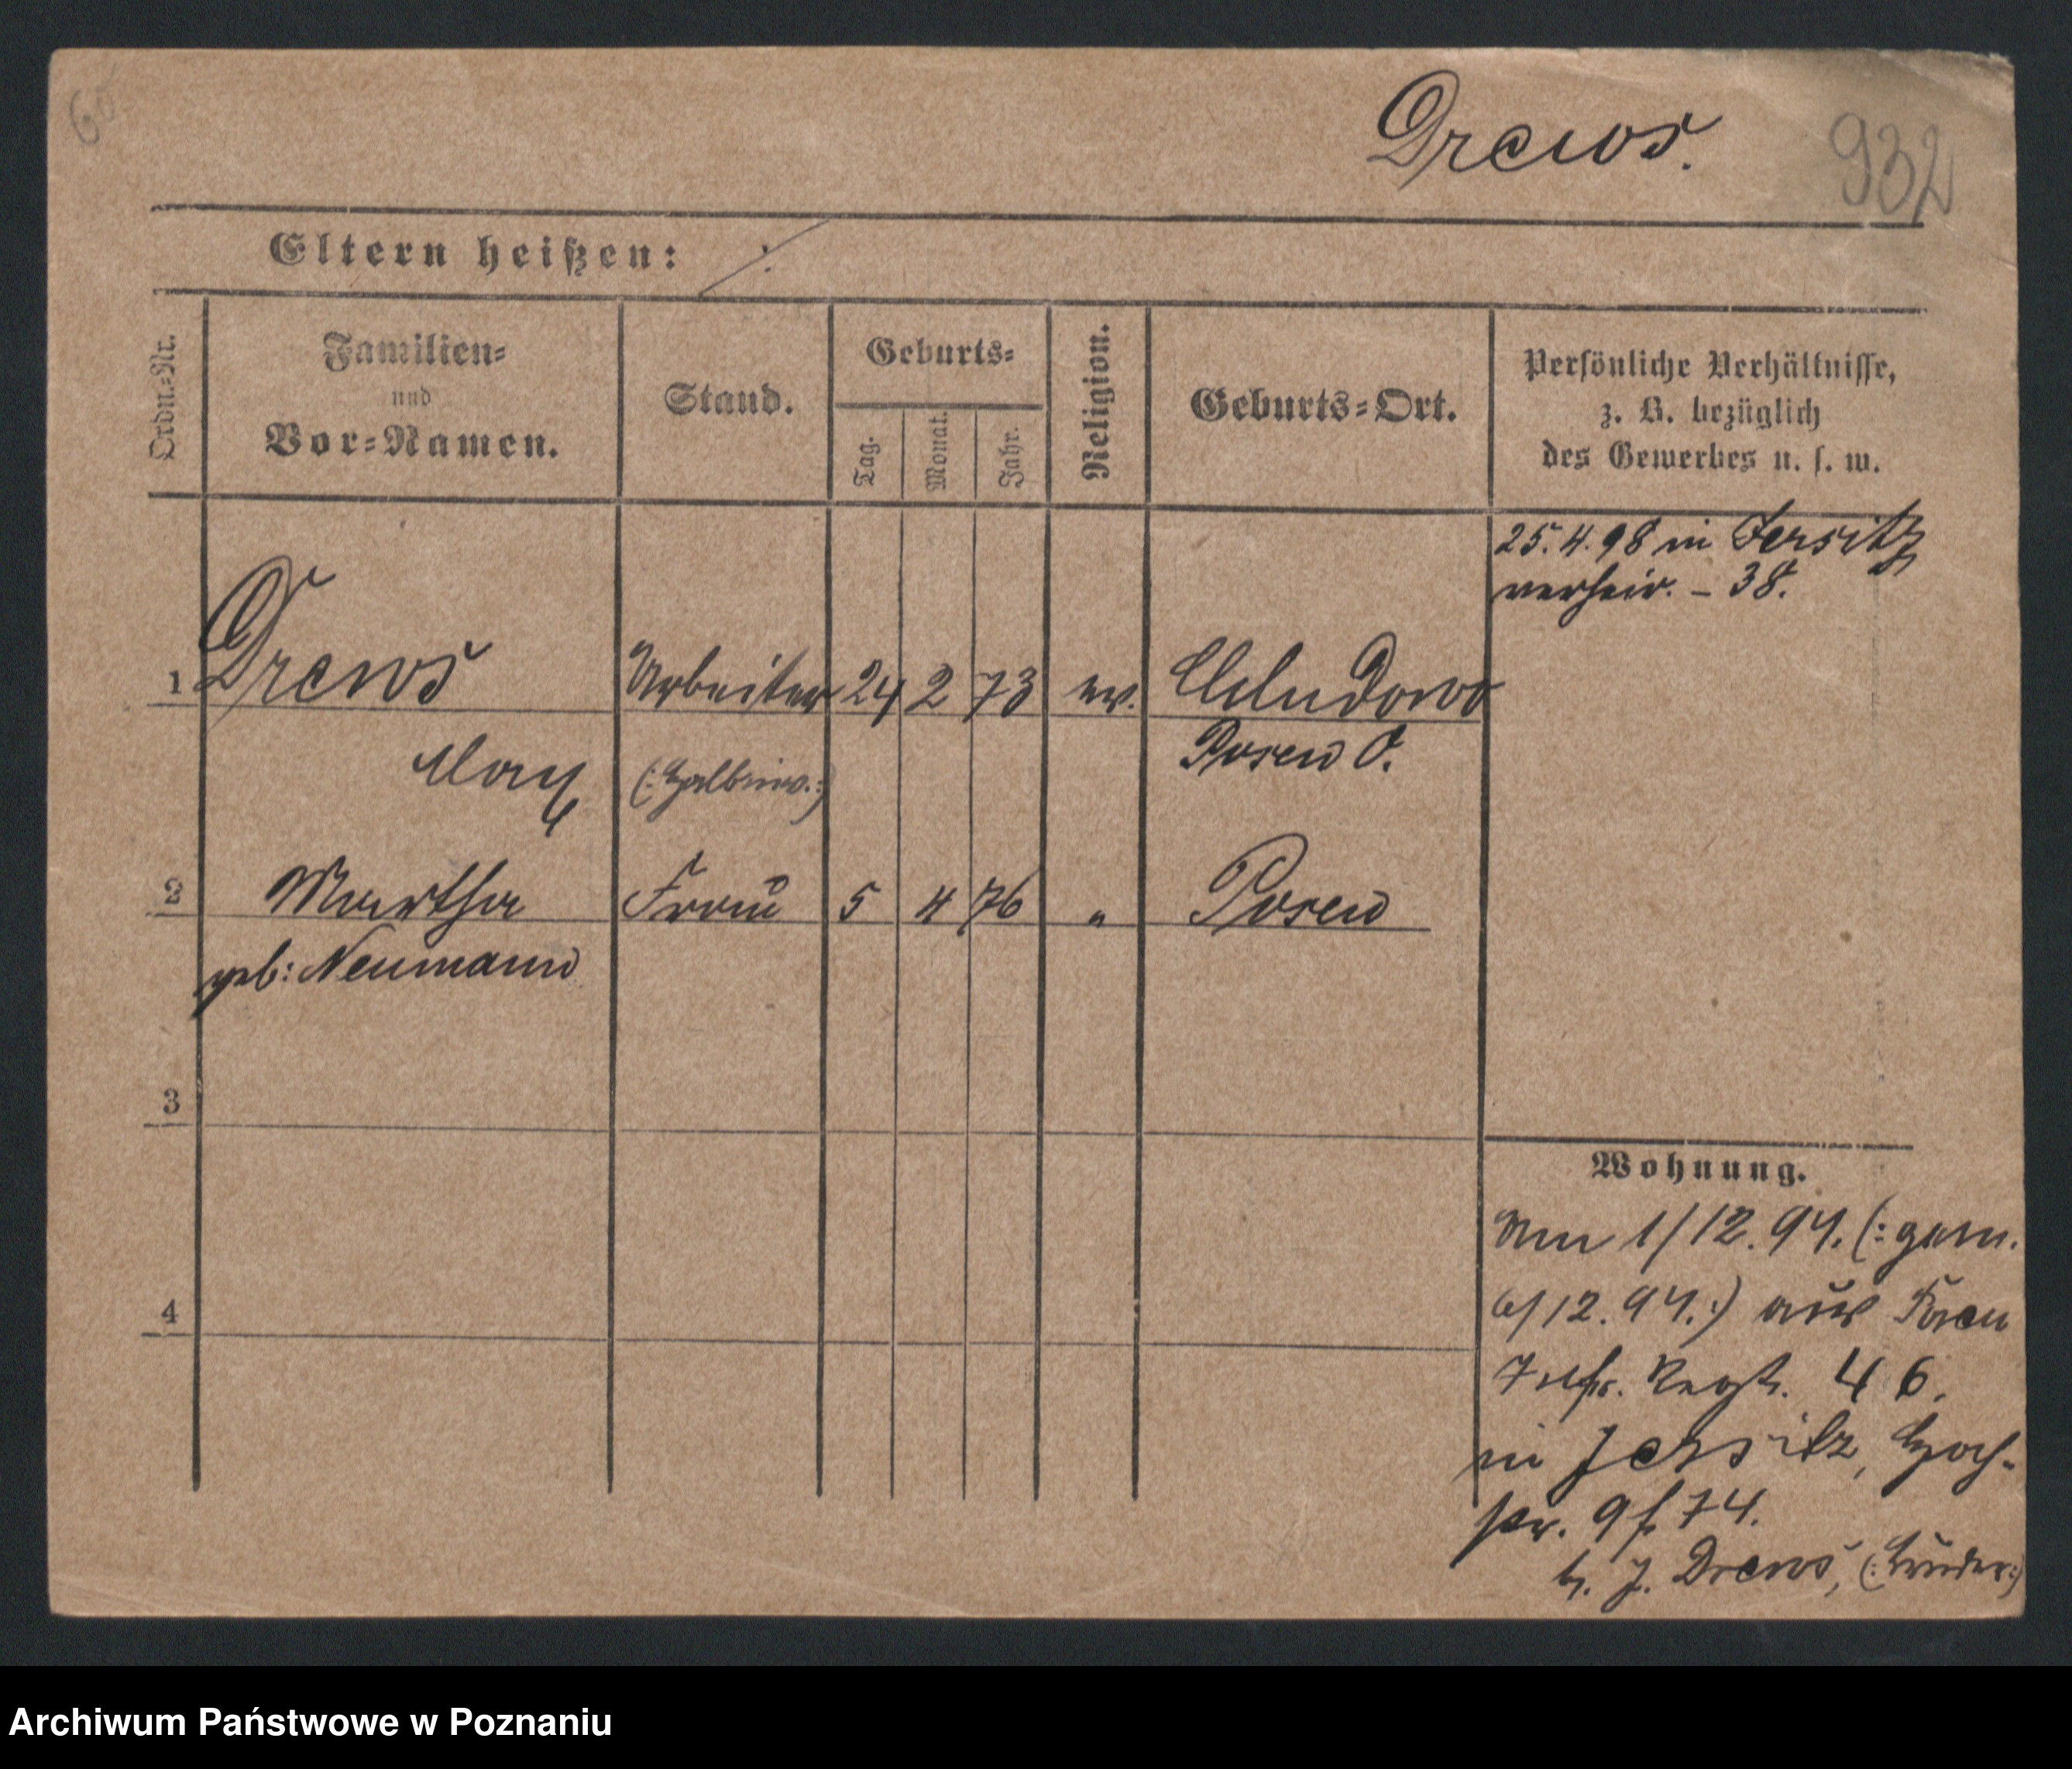 60
Drews.
932
Eltern heißen: ⁒
Ordn.-Nr.
Familien-
und
Vor-Namen.
Stand.
Geburts-
Tag.
Monat.
Jahr.
Religion.
Geburts-Ort.
Persönliche Verhältnisse,
z. B. bezüglich
des Gewerbes u. s. w.
25.4.98 in Jersitz
verheir. – 38.
1 Drews Arbeiter 24 2 73 ev. Chludowo
Max (:Halbinv.:) Posen O.
2 Martha Frau 5 4 76 " Posen
geb: Neumann
3
4
Wohnung.
Am 1/12.94. (: gem.
6/12.94.:) aus Posen
Inf. Regt. 46.
in Jersitz, Hoch-
str. 9 f 74.
b. J. Drews, (:Bruder:)
Archiwum Państwowe w Poznaniu